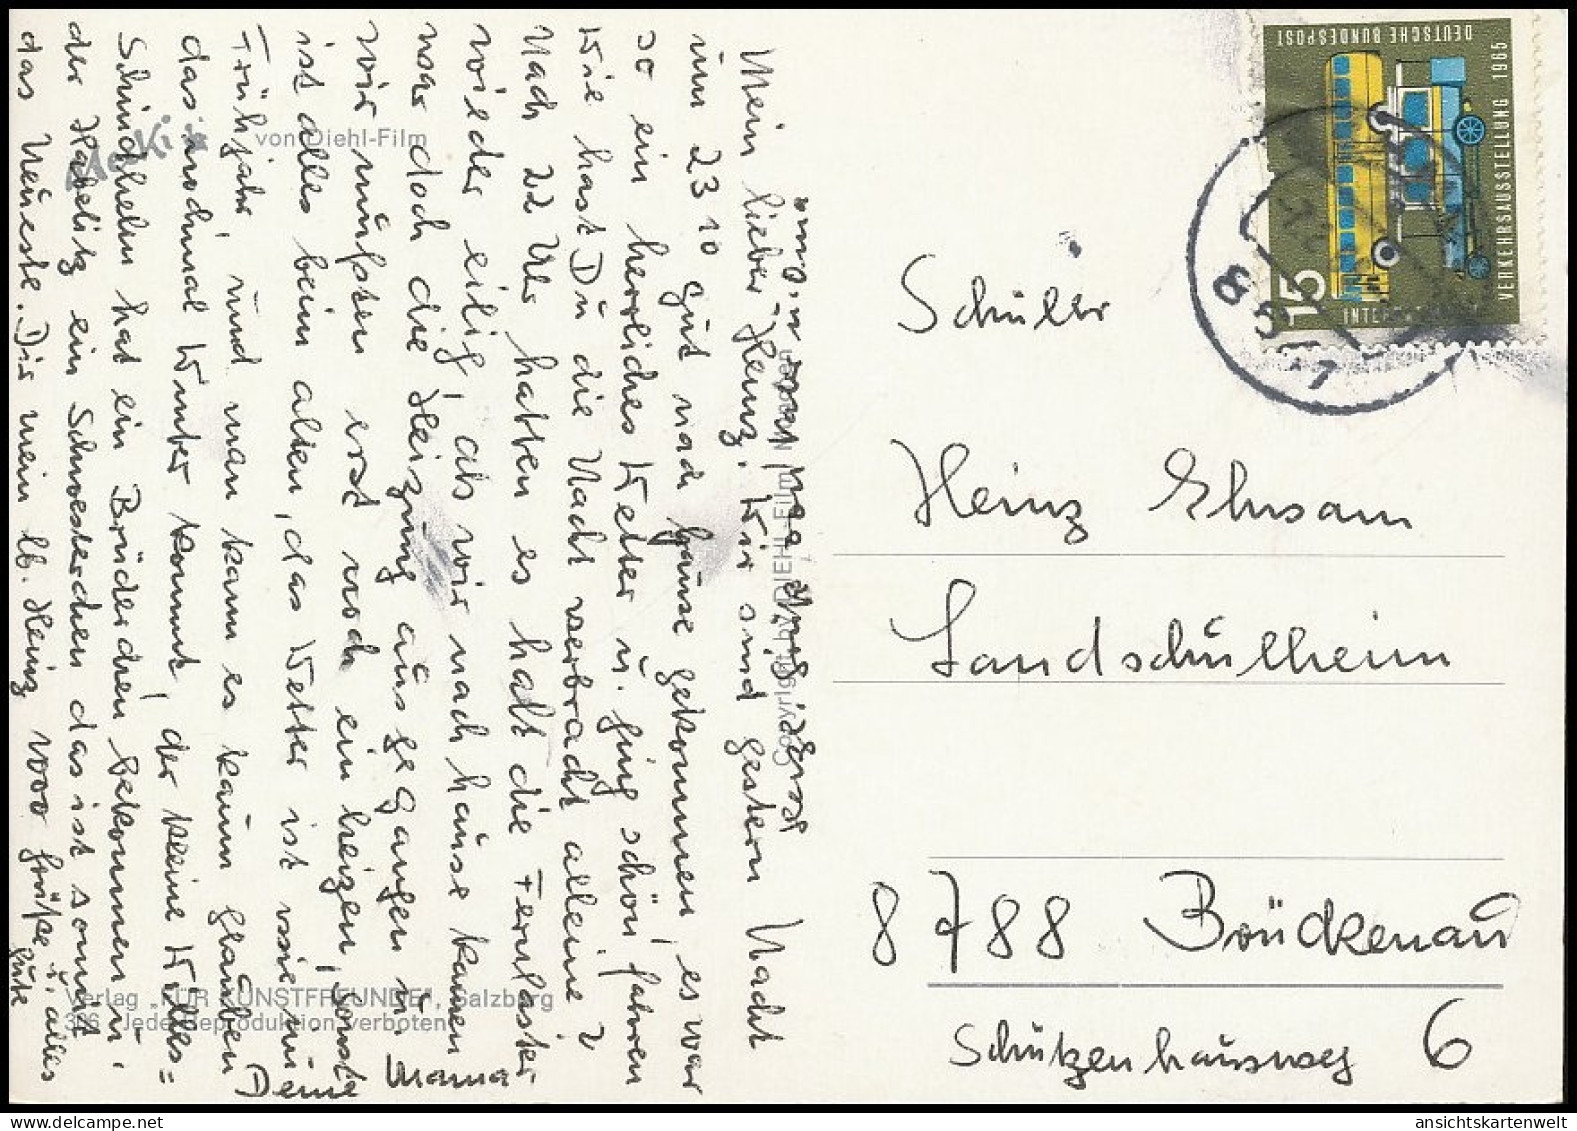 Mein lieber Heinz. Wir sind gestern Nacht
um 23 10 gut nach hause gekommen, es war
so ein herrliches Wetter u. ging schön fahren
Wie hast Du die Nacht verbracht alleine?
Nach 22 Uhr hatten es halt die Fernlaster
wieder eilig, als wir nach hause kamen
war doch die Heizung aus gegangen u.
wir mußten erst noch ein heizen, sonst
ist alles beim alten, das Wetter ist wie im
Frühjahr, und man kann es kaum glauben
das nochmal Winter kommt, der kleine
Schindhelm hat ein Brüderchen bekommen u.
der ein Schwesterchen das ist somit
das Neueste. Dir mein lb. Heinz 1000 Grüße u. alles
gute
Deine
Mama
Grüße von Papa u. Oma
Mecki
von Diehl-Film
Copyright by DIEHL-Film, München
Verlag „FÜR KUNSTFREUNDE", Salzburg
376 Jede Reproduktion verboten
DEUTSCHE BUNDESPOST
15
INTE
VERKEHRSAUSSTELLUNG 1965
Schüler
Heinz Ehrsam
Landschulheim
8788 Brückenau
Schützenhausweg 6
ansichtskartenwelt